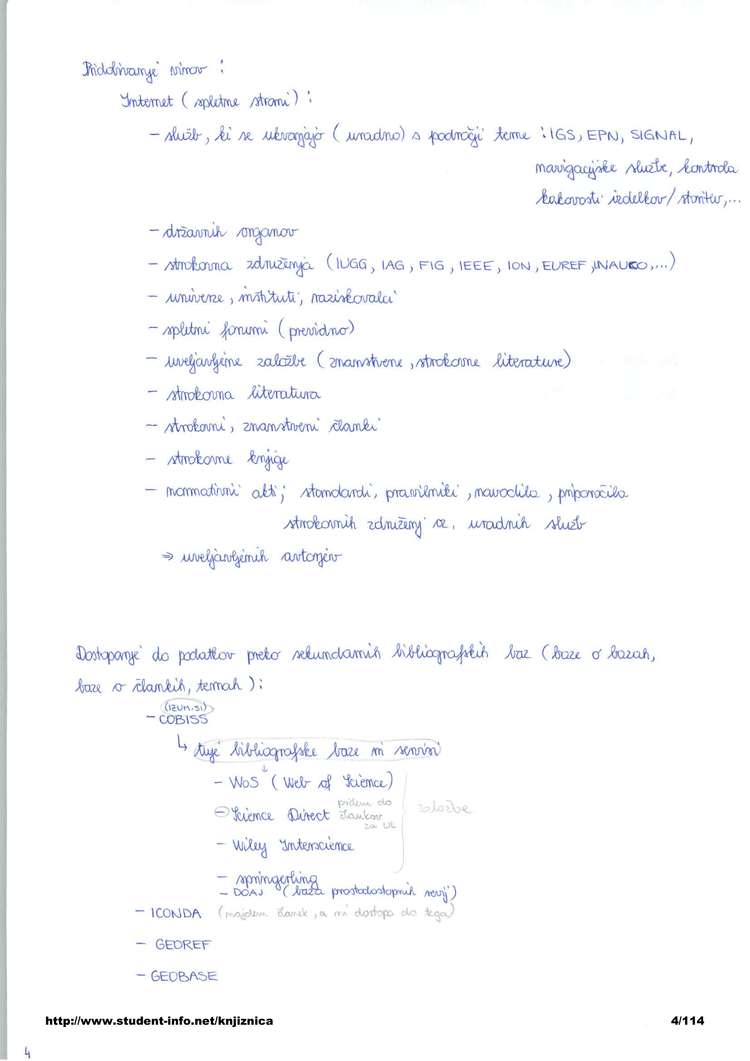 Pridobivanje virov :
Internet ( spletne strani ) :
– služb, ki se ukvarjajo ( uradno) s področji teme : IGS, EPN, SIGNAL,
navigacijske službe, kontrola
kakovosti izdelkov/storitev,...
– državnih organov
– strokovna združenja (IUGG, IAG, FIG, IEEE, ION, EUREF, INAUCO,...)
– univerze, inštituti, raziskovalci
– spletni forumi ( previdno)
– uveljavljene založbe ( znanstvene, strokovne literature)
– strokovna literatura
– strokovni, znanstveni članki
– strokovne knjige
– normativni akti; standardi, pravilniki, navodila, priporočila
strokovnih združenj oz. uradnih služb
⇒ uveljavljenih avtorjev
Dostopanje do podatkov preko sekundarnih bibliografskih baz (baze o bazah,
baze o člankih, temah ) :
(IZUM.SI)
– COBISS
↳ tuje bibliografske baze in servisi
– WoS ( Web of Science)
– Science Direct pridem do člankov za UL
založbe
– Wiley Interscience
– springerling
– DOAJ (baza prostodostopnih revij)
– ICONDA (najdem članek, a ni dostopa do tega)
– GEOREF
– GEOBASE
http://www.student-info.net/knjiznica 4/114
4